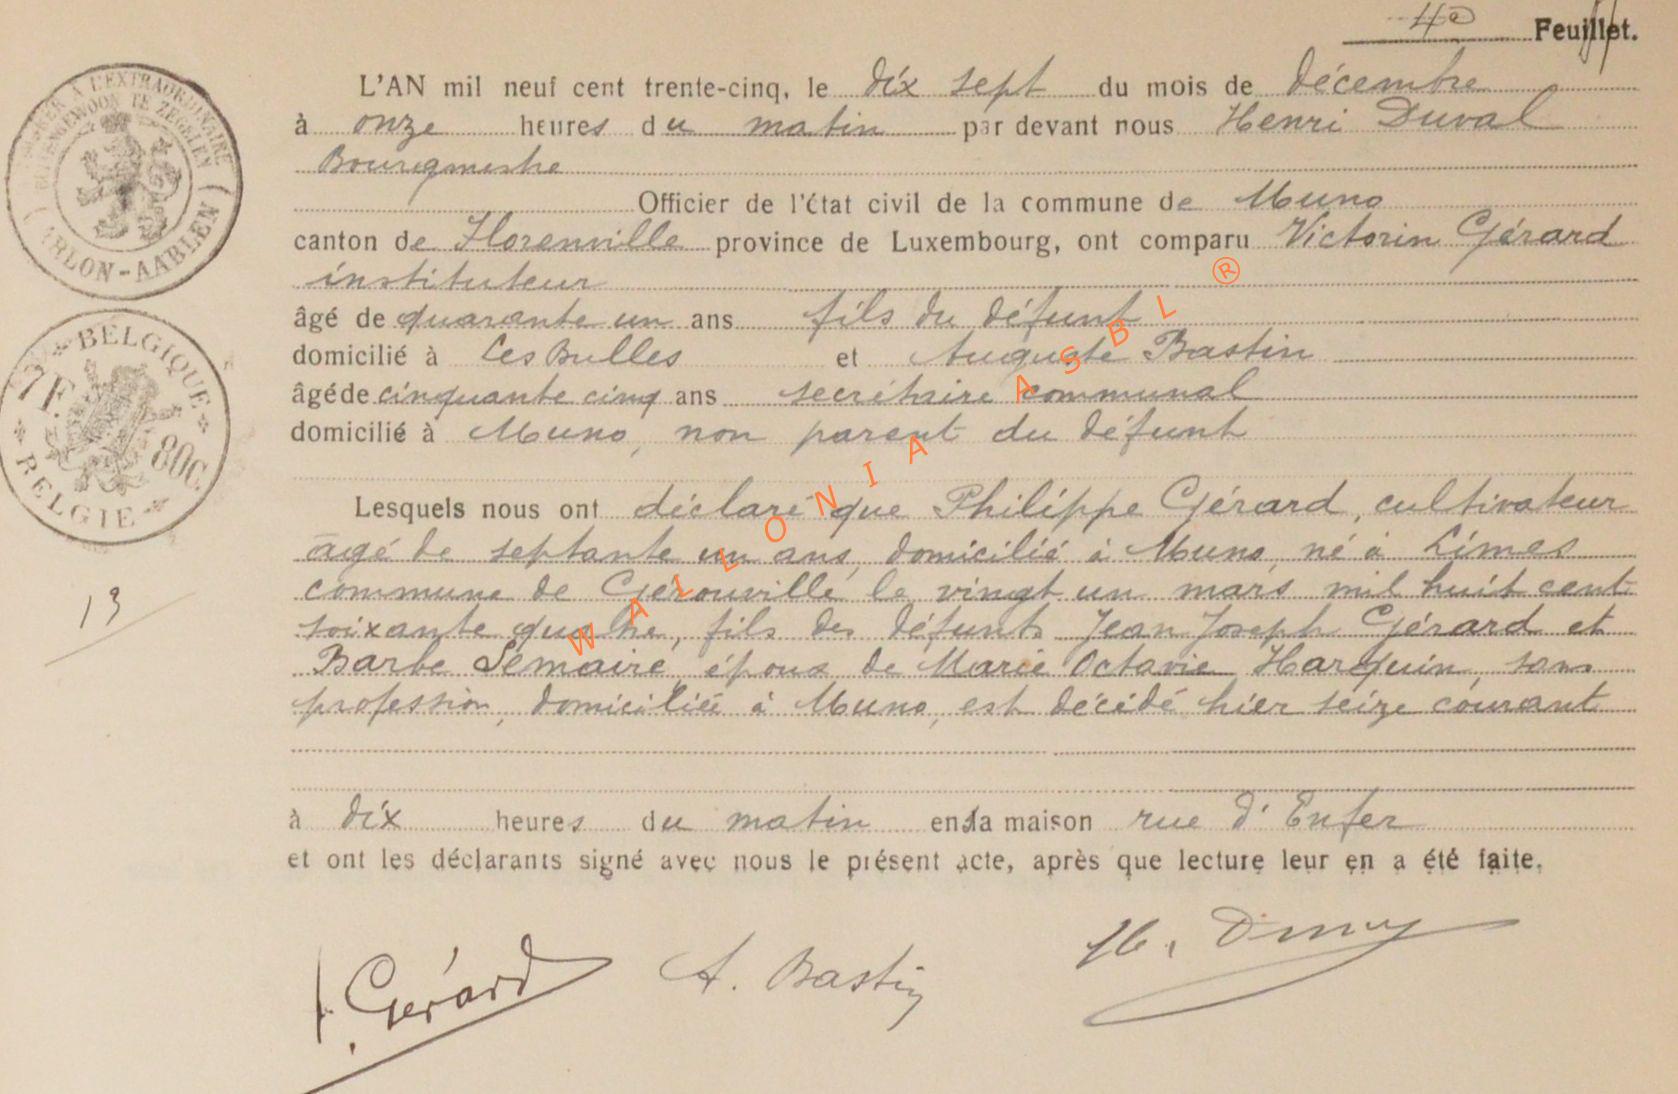 4e Feuillet.
L'AN mil neuf cent trente-cinq, le dix sept du mois de décembre
à onze heures du matin par devant nous Henri Duval
Bourgmestre
Officier de l'état civil de la commune de Muno
canton de Florenville province de Luxembourg, ont comparu Victorin Gérard
instituteur
âgé de quarante un ans fils du défunt
domicilié à Les Bulles et Auguste Bastin
âgé de cinquante cinq ans secrétaire communal
domicilié à Muno, non parent du défunt
Lesquels nous ont déclaré que Philippe Gérard, cultivateur
âgé de septante un ans, domicilié à Muno, né à Limes
commune de Gérouville le vingt un mars mil huit cent
soixante quatre, fils des défunts Jean Joseph Gérard et
Barbe Lemaire, époux de Marie Octavie Harquin, sans
profession, domiciliée à Muno, est décédé hier seize courant
à dix heures du matin en sa maison rue d'Enfer
et ont les déclarants signé avec nous le présent acte, après que lecture leur en a été faite.
Gérard A. Bastin H. Duval
TIMBRER A L'EXTRAORDINAIRE
BUITENGEWOON TE ZEGELEN
ARLON-AARLEN
BELGIQUE
7F. 80C.
BELGIE
13
WALLONIA ASBL ®